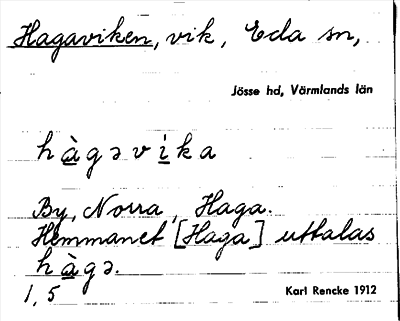 Hagaviken, vik, Eda sn,
Jösse hd, Värmlands län
hàgəvika
By, Norra, Haga.
Hemmanet [Haga] uttalas
hàgə.
1, 5
Karl Rencke 1912